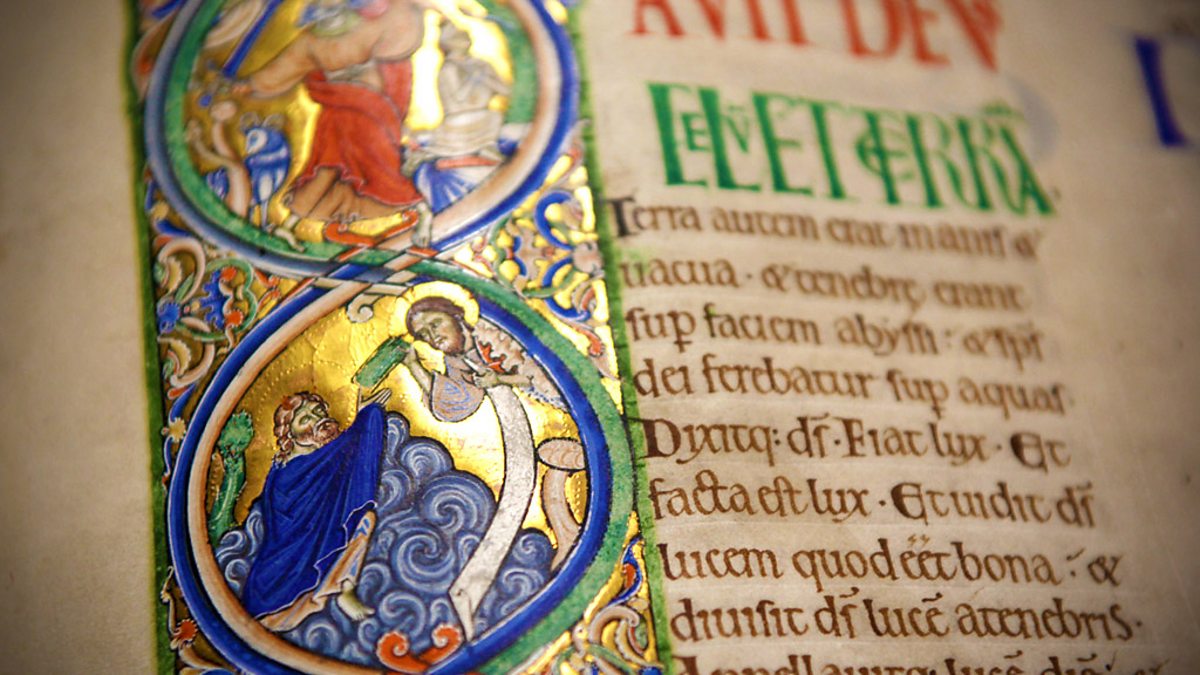 AVIT DEVS
CELV ET TERRA
Terra autem erat inanis &
uacua · & tenebrę erant
sup faciem abyssi : & sps
dei ferebatur sup aquas ·
Dixitq: ds · Fiat lux · Et
facta est lux · Et uidit ds
lucem quod eet bona : &
diuisit ds lucē a tenebris ·
Appellauitq: lucē diē :